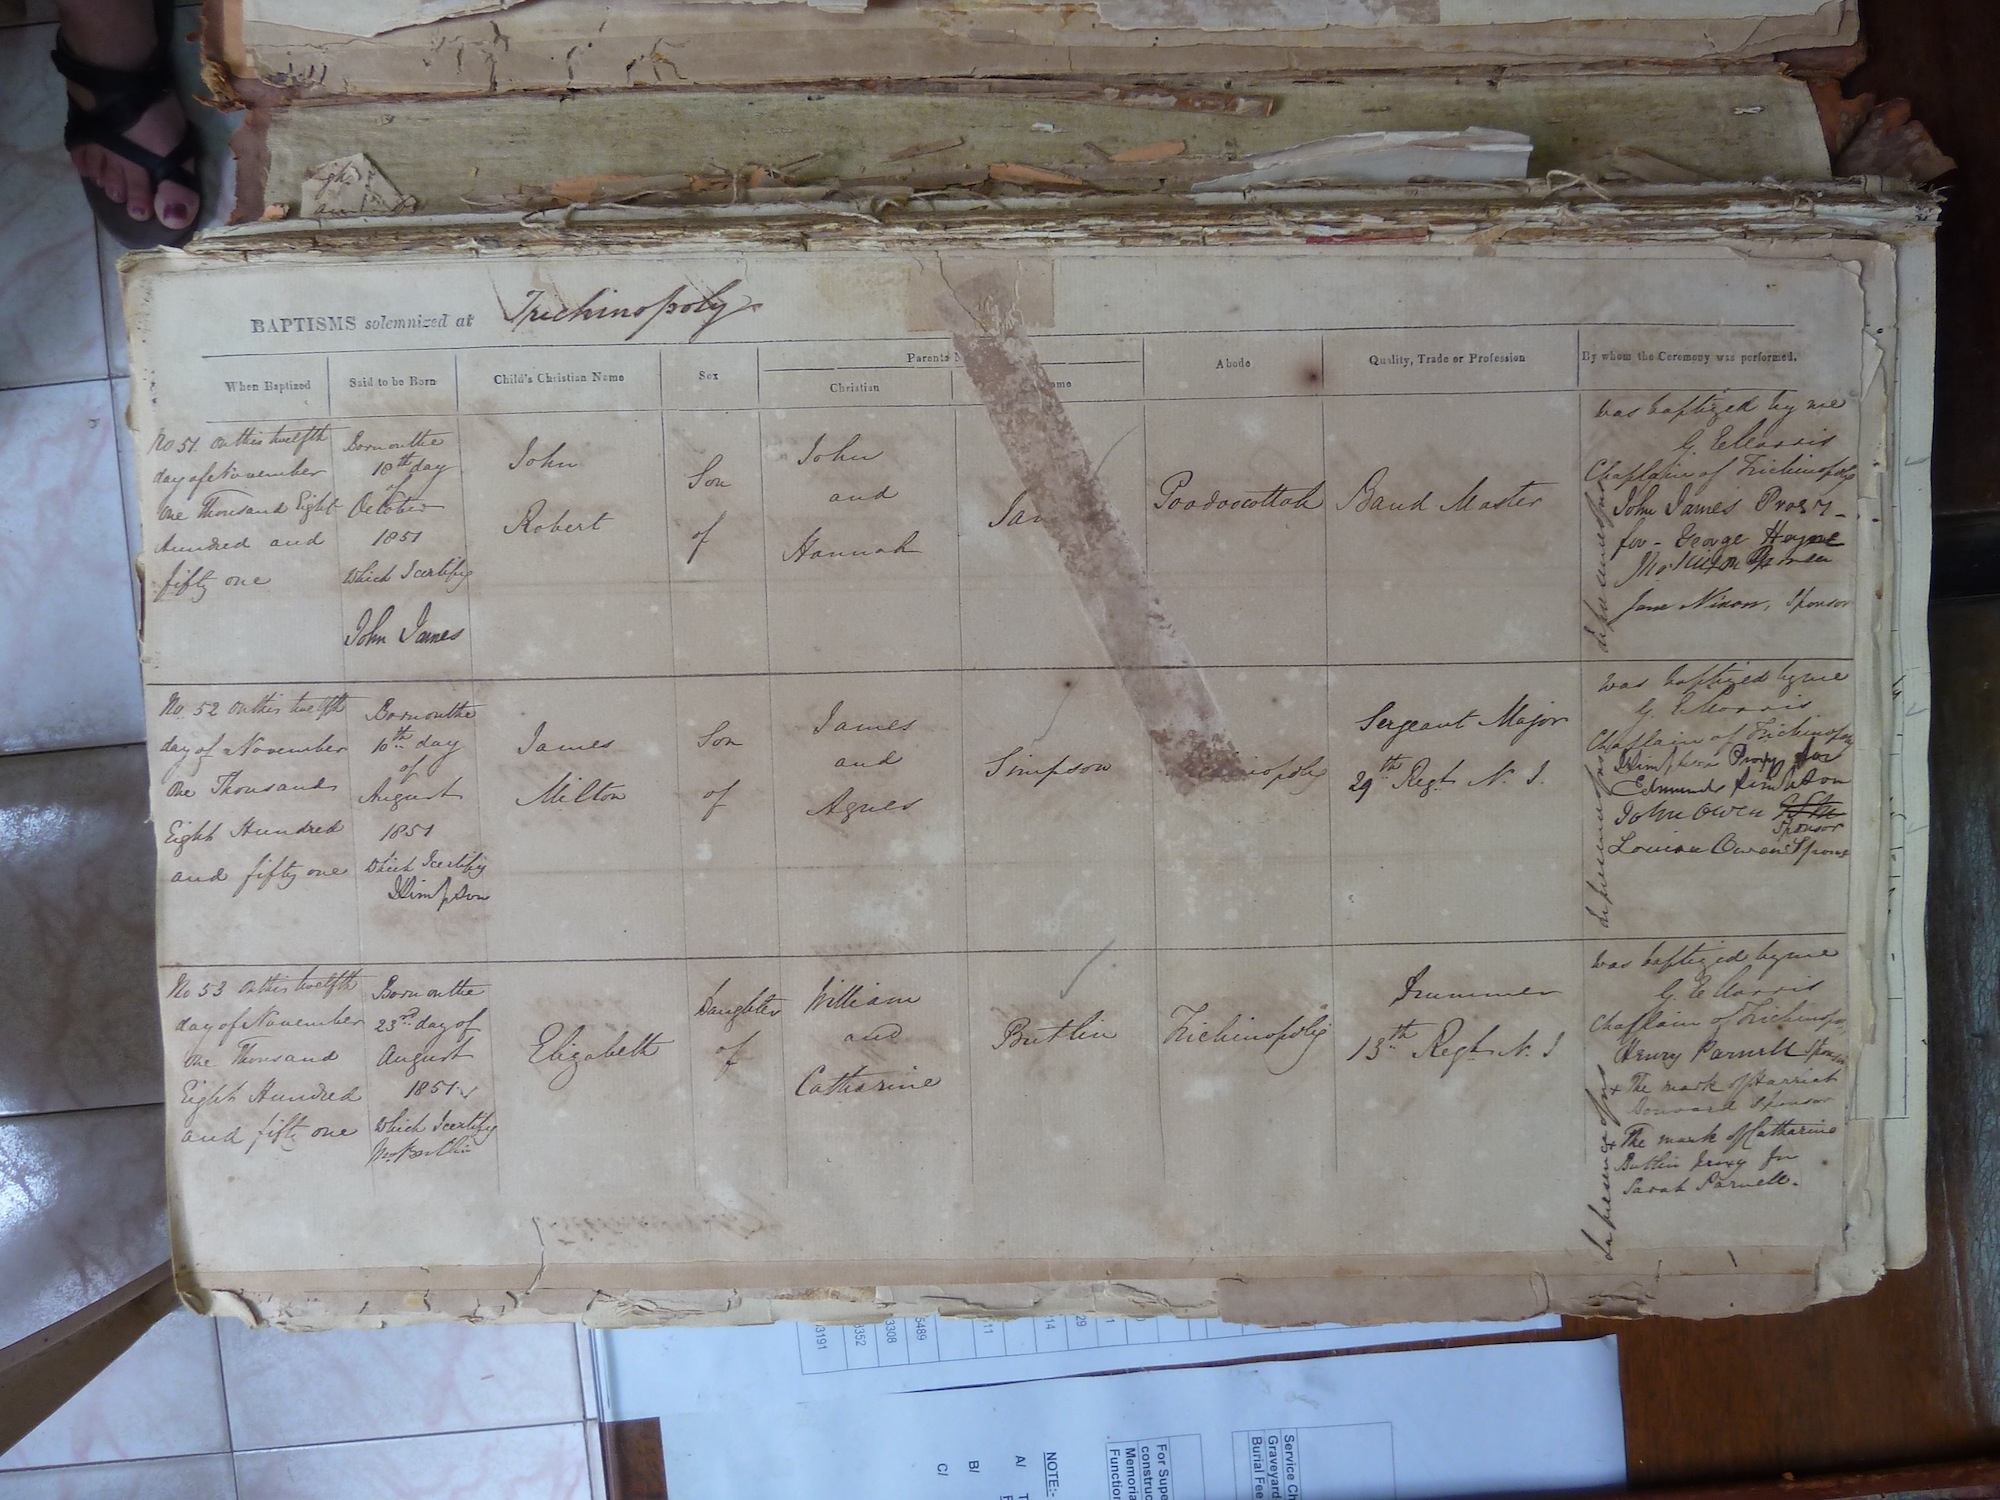 BAPTISMS solemnized at Trichinopoly
When Baptized
Said to be Born
Child's Christian Name
Sex
Parents N
Christian
ame
Abode
Quality, Trade or Profession
By whom the Ceremony was performed.
No 51 On this twelfth
day of November
One Thousand Eight
hundred and
fifty one
Born on the
18th day
of
October
1851
Which I certify
John James
John
Robert
Son
of
John
and
Hannah
Jam
Poodoocottah
Band Master
was baptized by me
G. E. Morris
Chaplain of Trichinopoly
In presence of us
John James Proxy
for - George Hayne
Jane Nixon, Sponsor
No. 52 On this twelfth
day of November
One Thousand
Eight Hundred
and fifty one
Born on the
10th day
of
August
1851
Which I certify
JSimpson
James
Milton
Son
of
James
and
Agnes
Simpson
inopoly
Sergeant Major
29th Regt. N. I.
was baptized by me
G. E. Morris
Chaplain of Trichinopoly
In presence of us
JSimpson Proxy for
Edmund Simpson
John Owen
Sponsor
Louisa Owen Spons
No 53 On this twelfth
day of November
One Thousand
Eight Hundred
and fifty one
Born on the
23rd day of
August
1851
Which I certify
Wm Butlin
Elizabeth
Daughter
of
William
and
Catharine
Butlin
Trichinopoly
Drummer
13th Regt. N. I
was baptized by me
G. E. Morris
Chaplain of Trichinopo
In presence of us
Henry Parnell Sponsor
x The mark of Harriet
Sponsor
x The mark of Catharine
Butlin Proxy for
Sarah Parnell.
3191
3352
3308
5489
11
14
29
1
NOTE:-
A/
B/
C/
For Supe
construc
Memoria
Function
Service Ch
Graveyard
Burial Fee